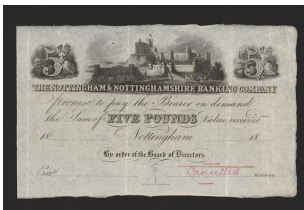 5 5
THE NOTTINGHAM & NOTTINGHAMSHIRE BANKING COMPANY
promise to pay the Bearer on demand
the Sum of FIVE POUNDS Value received
18 Nottingham 18
By order of the Board of Directors
Cancelled